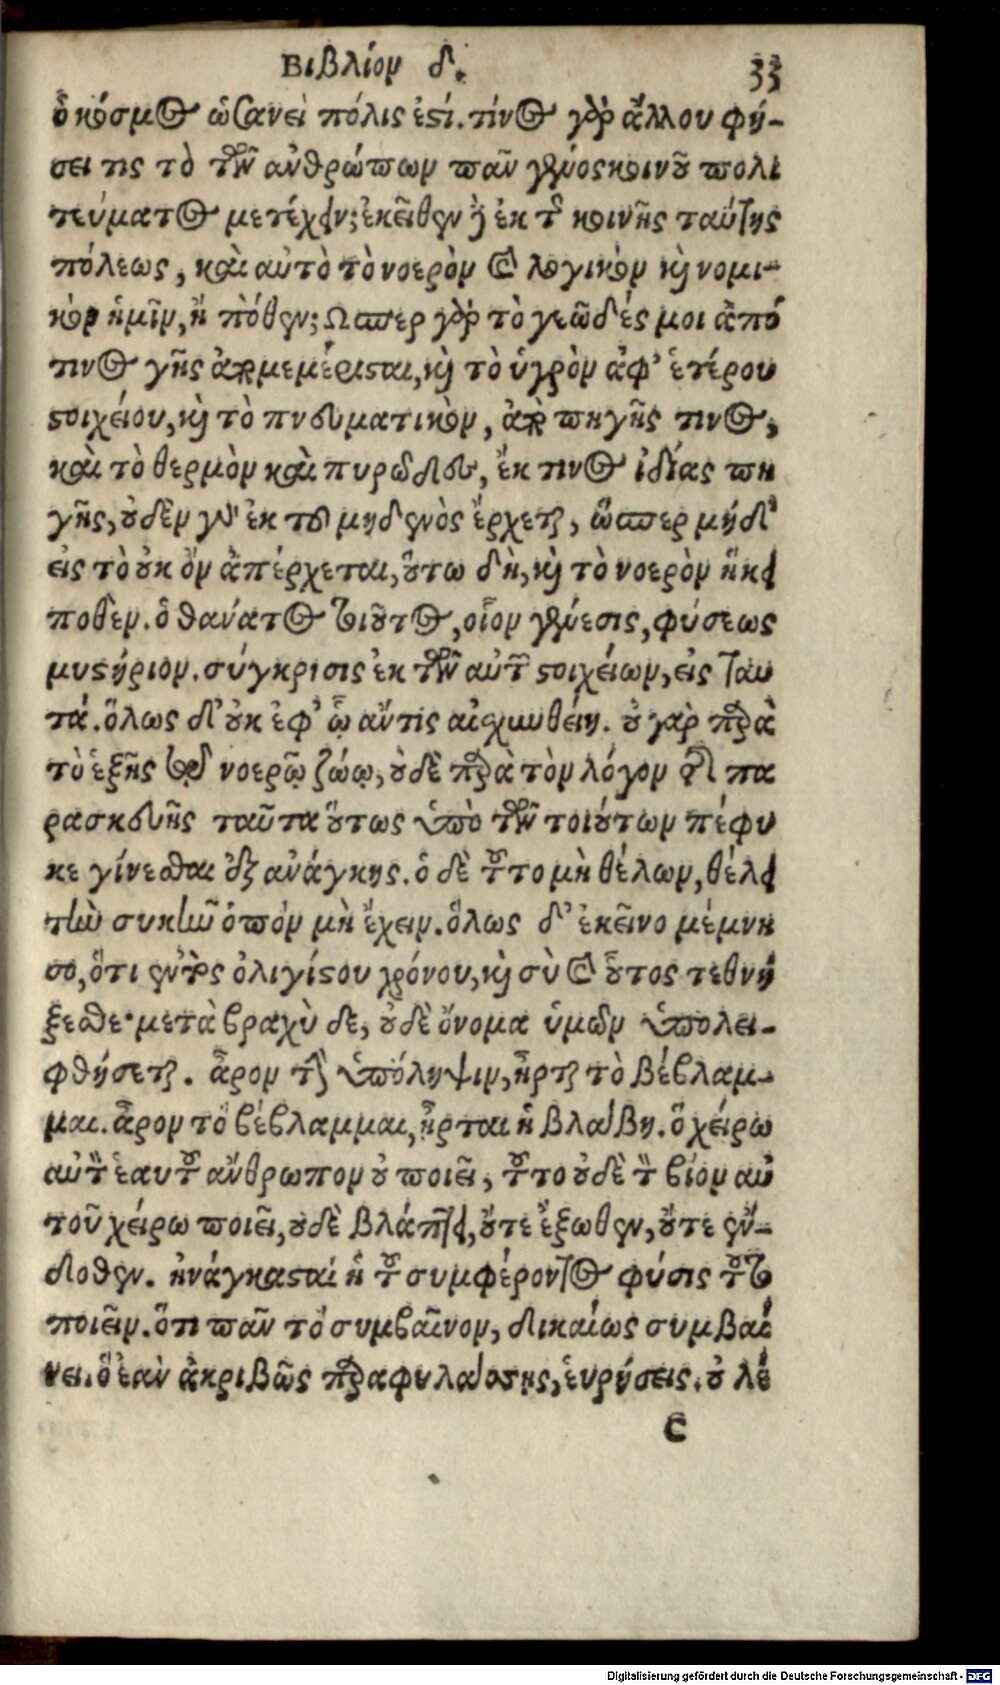 Βιβλίον δ. 33
ὁ κόσμος ὡσανεὶ πόλις ἐστί. τίνος γὰρ ἄλλου φή-
σει τις τὸ τῶν ἀνθρώπων πᾶν γένος κοινοῦ πολι
τεύματος μετέχειν; ἐκεῖθεν δὲ ἐκ τῆς κοινῆς ταύτης
πόλεως, καὶ αὐτὸ τὸ νοερὸν καὶ λογικὸν καὶ νομι-
κὸν ἡμῖν, ἢ πόθεν; Ὥσπερ γὰρ τὸ γεῶδές μοι ἀπό
τινος γῆς ἀπομεμέρισται, καὶ τὸ ὑγρὸν ἀφ' ἑτέρου
στοιχείου, καὶ τὸ πνευματικὸν, ἀπὸ πηγῆς τινος,
καὶ τὸ θερμὸν καὶ πυρῶδες, ἔκ τινος ἰδίας πη
γῆς, οὐδὲν γὰρ ἐκ τοῦ μηδενὸς ἔρχεται, ὥσπερ μήδ'
εἰς τὸ οὐκ ὂν ἀπέρχεται, οὕτω δὴ, καὶ τὸ νοερὸν ἥκει
ποθεν. ὁ θάνατος τοιοῦτος, οἷον γένεσις, φύσεως
μυστήριον. σύγκρισις ἐκ τῶν αὐτῶν στοιχείων, εἰς ταυ
τά. ὅλως δ' οὐκ ἐφ' ᾧ ἄν τις αἰσχυνθείη. οὐ γὰρ παρὰ
τὸ ἑξῆς τῷ νοερῷ ζώῳ, οὐδὲ παρὰ τὸν λόγον τῆς πα
ρασκευῆς ταῦτα οὕτως ὑπὸ τῶν τοιούτων πέφυ
κε γίνεσθαι ἐξ ἀνάγκης. ὁ δὲ τοῦτο μὴ θέλων, θέλει
τὴν συκῆν ὀπὸν μὴ ἔχειν. ὅλως δ' ἐκεῖνο μέμνη
σο, ὅτι ἐντὸς ὀλιγίστου χρόνου, καὶ σὺ καὶ οὗτος τεθνή
ξεσθε· μετὰ βραχὺ δε, οὐδὲ ὄνομα ὑμῶν ὑπολει-
φθήσεται. ἆρον τὴν ὑπόληψιν, ἦρται τὸ βέβλαμ-
μαι. ἆρον τὸ βέβλαμμαι, ἦρται ἡ βλάβη. ὃ χείρω
αὐτὸν ἑαυτοῦ ἄνθρωπον οὐ ποιεῖ, τοῦτο οὐδὲ τὸν βίον αὐ
τοῦ χείρω ποιεῖ, οὐδὲ βλάπτει, οὔτε ἔξωθεν, οὔτε ἔν-
δοθεν. ἠνάγκασται ἡ τοῦ συμφέροντος φύσις τοῦτο
ποιεῖν. ὅτι πᾶν τὸ συμβαῖνον, δικαίως συμβαί
νει. ὃ ἐὰν ἀκριβῶς παραφυλάσσῃς, εὑρήσεις. οὐ λέ
C
Digitalisierung gefördert durch die Deutsche Forschungsgemeinschaft - DFG